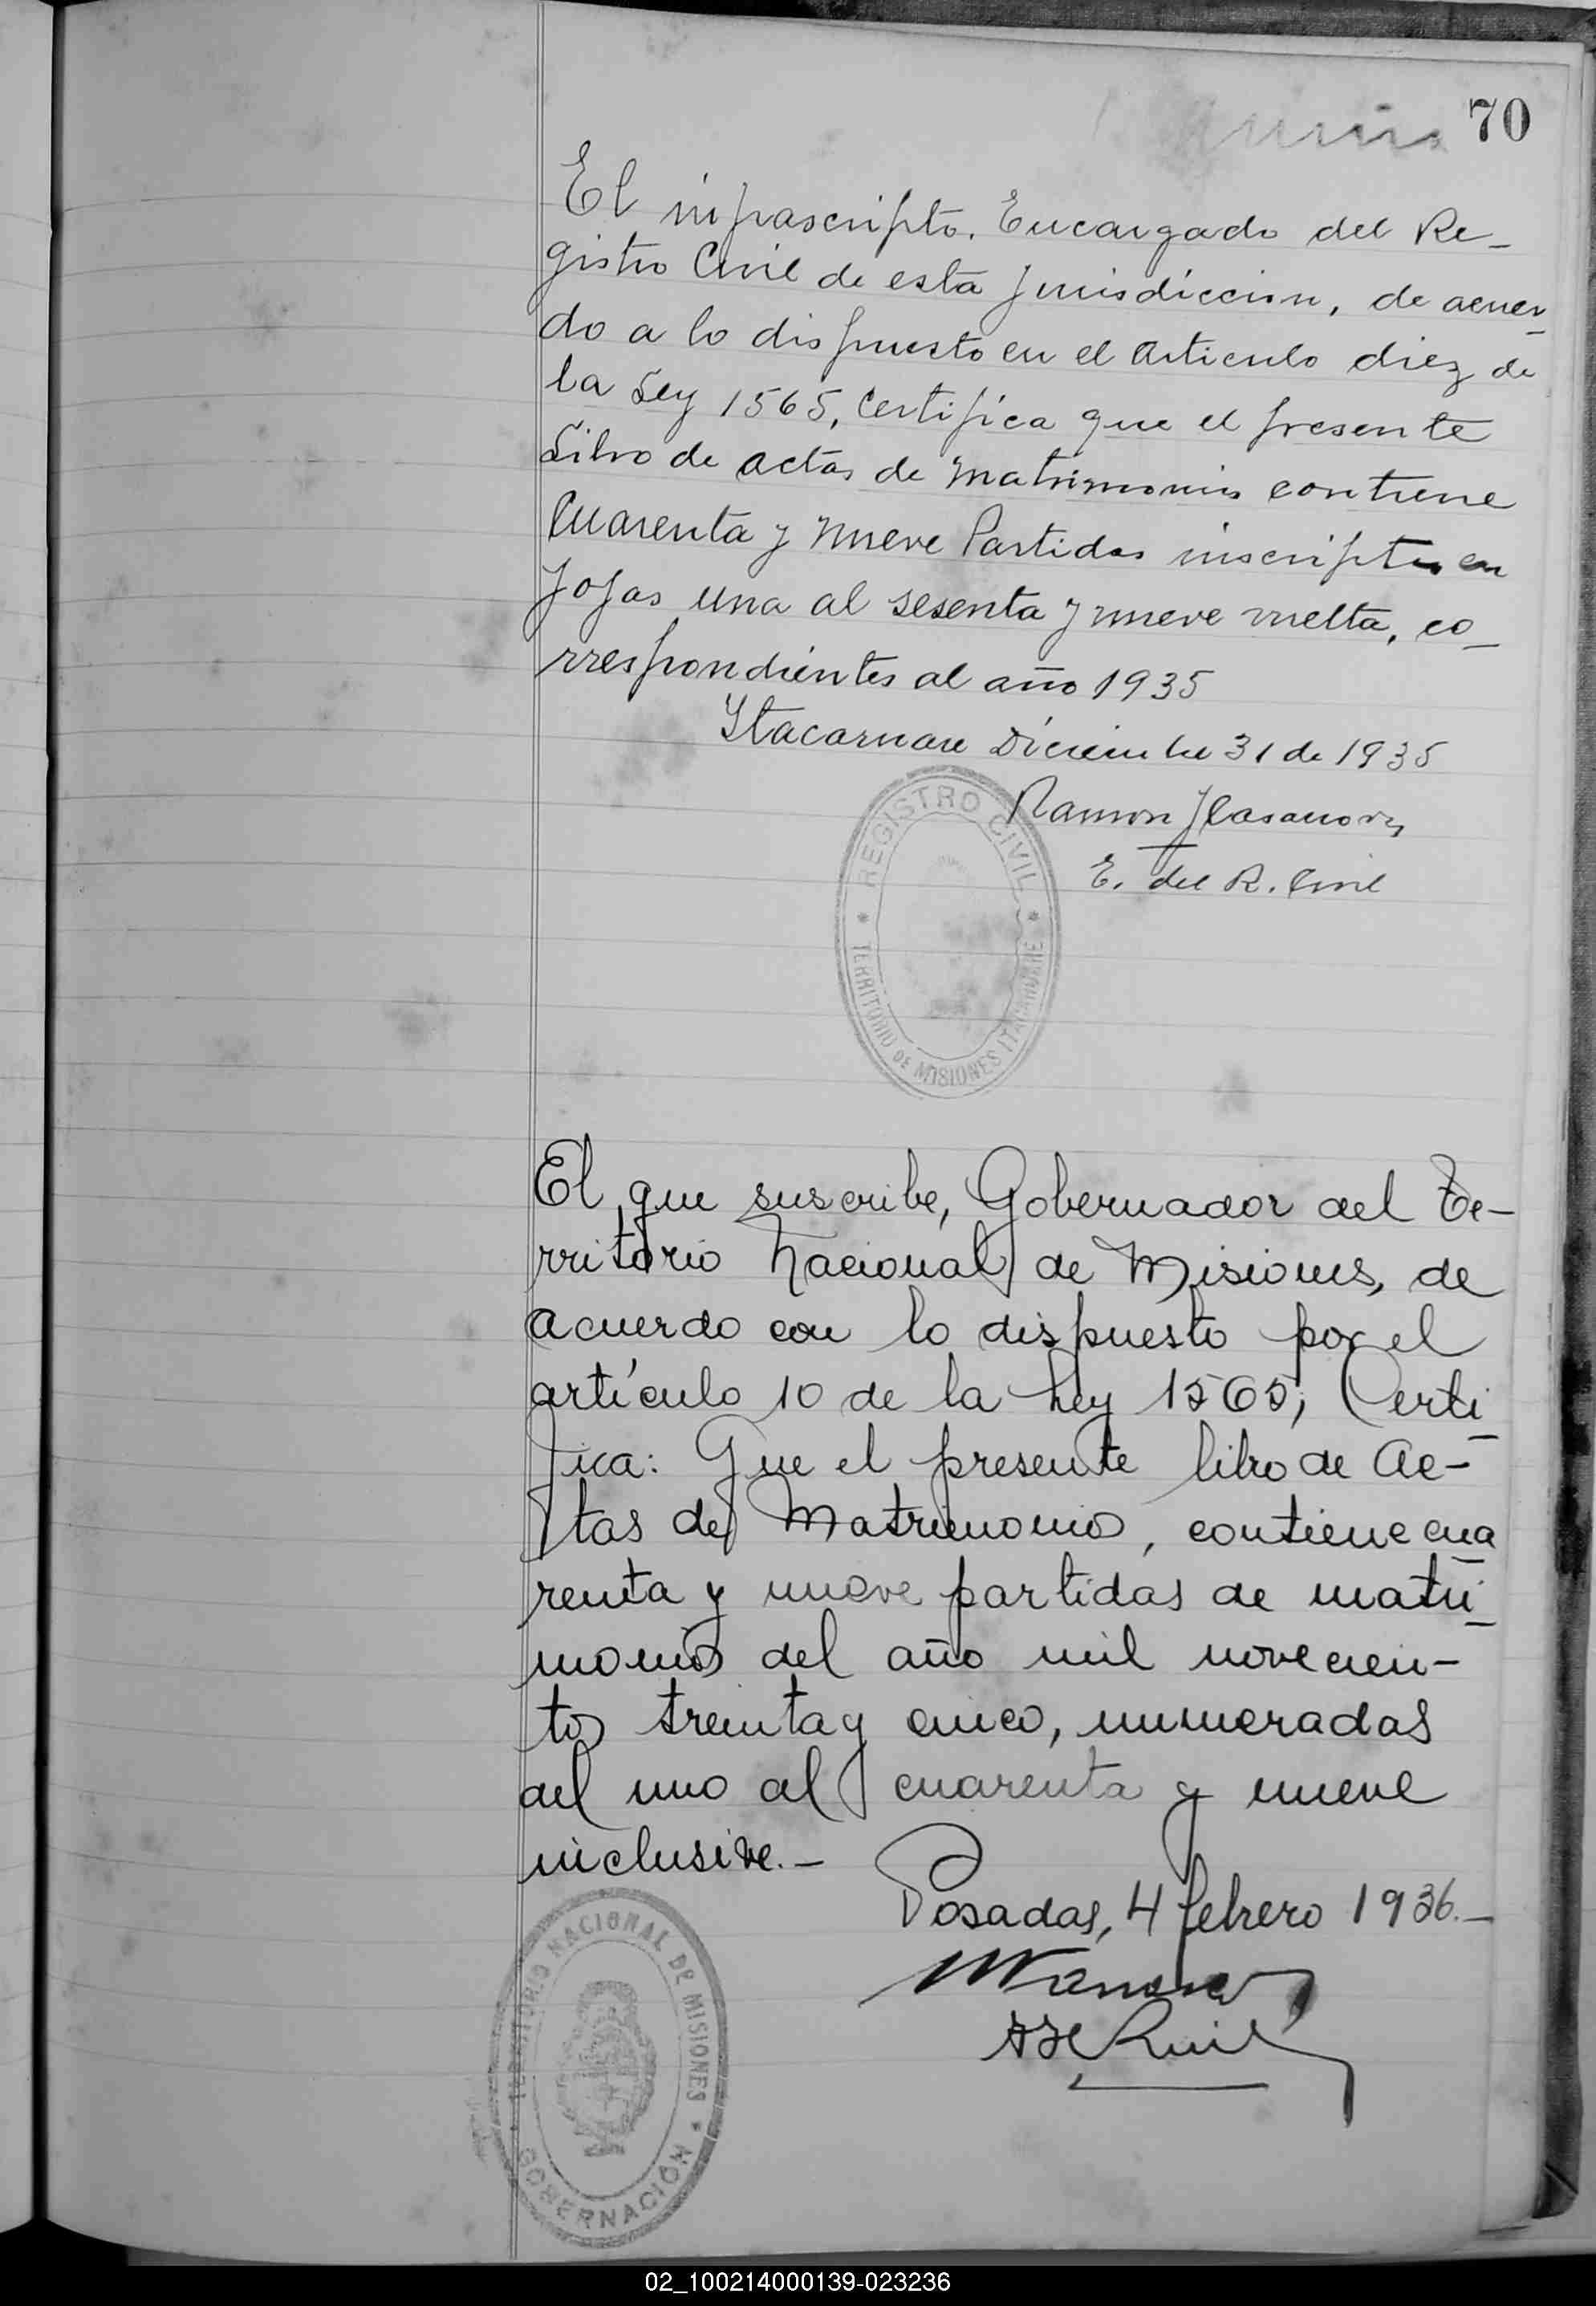 70
El infrascripto. Encargado del Re-
gistro Civil de esta Jurisdiccion, de acuer-
do a lo dispuesto en el Articulo diez de
la Ley 1565, Certifica que el presente
Libro de actas de Matrimonios contiene
Cuarenta y nueve Partidas inscriptas en
fojas una al sesenta y nueve vuelta, co-
rrespondientes al año 1935
Itacaruare Diciembre 31 de 1935
Ramon J Casanova
E. del R. Civil
REGISTRO CIVIL
TERRITORIO DE MISIONES ITACARUARE
El que suscribe, Gobernador del Te-
rritorio Nacional de Misiones, de
acuerdo con lo dispuesto por el
artículo 10 de la Ley 1565; Certi-
fica: Que el presente libro de Ac-
tas de Matrimonio, contiene cua-
renta y nueve partidas de matri-
monios del año mil novecien-
tos treinta y cinco, numeradas
del uno al cuarenta y nueve
inclusive.-
Posadas, 4 febrero 1936.-
TERRITORIO NACIONAL DE MISIONES
GOBERNACIÓN
02_100214000139-023236